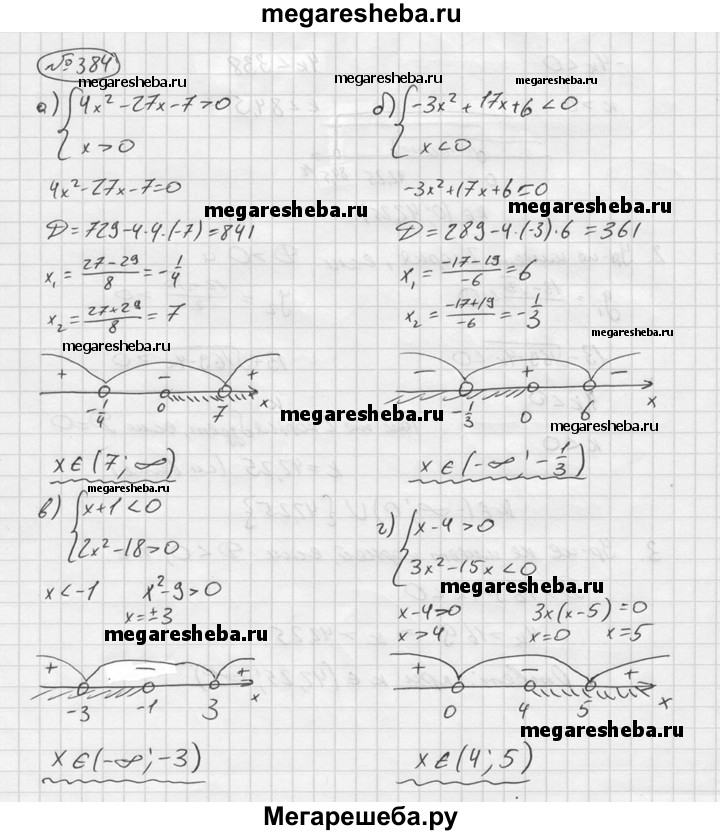 megaresheba.ru
№384
megaresheba.ru
megaresheba.ru
megaresheba.ru
а) { 4x² - 27x - 7 > 0
x > 0
4x² - 27x - 7 = 0
megaresheba.ru
D = 729 - 4·4·(-7) = 841
x₁ = (27 - 29)/8 = -1/4
x₂ = (27 + 29)/8 = 7
megaresheba.ru
+ - +
-1/4 0 7 x
megaresheba.ru
x ∈ (7; ∞)
б) { -3x² + 17x + 6 < 0
x < 0
-3x² + 17x + 6 = 0
megaresheba.ru
D = 289 - 4·(-3)·6 = 361
x₁ = (-17 - 19)/-6 = 6
x₂ = (-17 + 19)/-6 = -1/3
megaresheba.ru
- + -
-1/3 0 6 x
megaresheba.ru
x ∈ (-∞; -1/3)
megaresheba.ru
megaresheba.ru
в) { x + 1 < 0
2x² - 18 > 0
x < -1 x² - 9 > 0
x = ±3
megaresheba.ru
+ - +
-3 -1 3 x
x ∈ (-∞; -3)
г) { x - 4 > 0
3x² - 15x < 0
megaresheba.ru
x - 4 > 0 3x(x - 5) = 0
x > 4 x = 0 x = 5
megaresheba.ru
+ - +
0 4 5 x
megaresheba.ru
x ∈ (4; 5)
Мегарешеба.ру